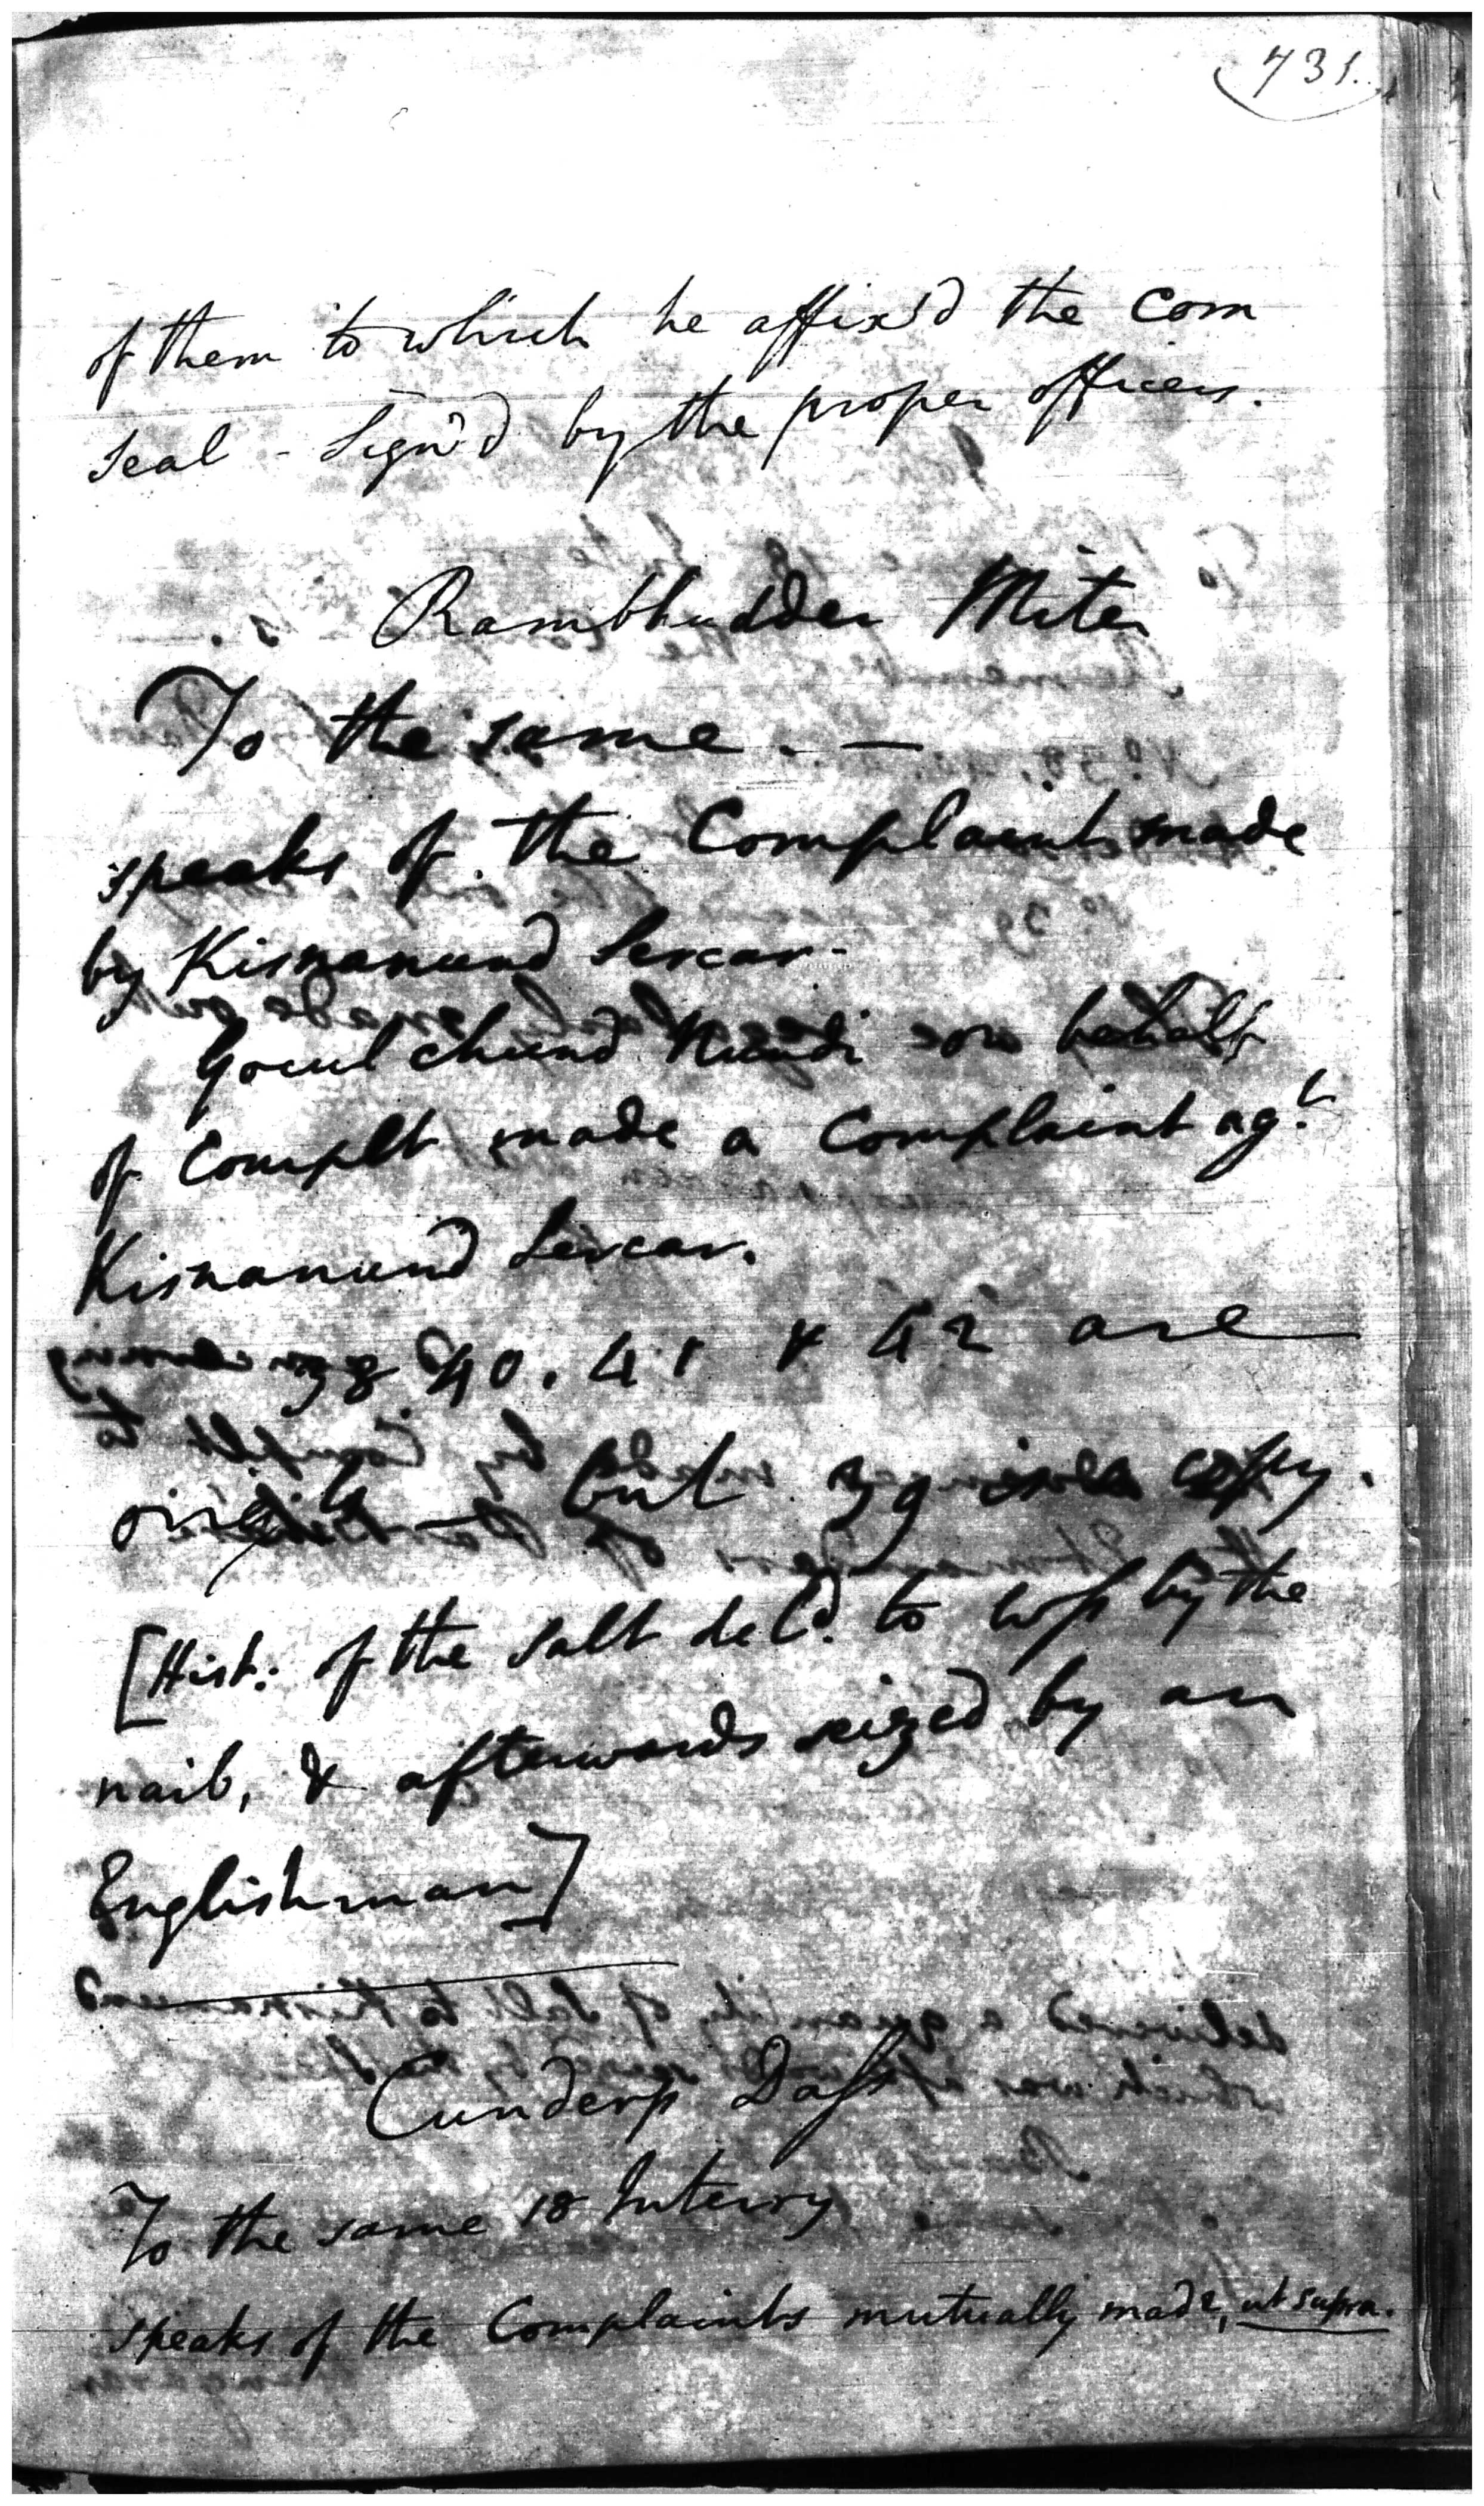 731.
of them to which he affix'd the Com
seal - Sign'd by the proper officers.
Rambhudder Miter
To the same. —
speaks of the Complaints made
by Kisnanund Sercar-
Gocul chund Nundi on behalf
of Complt made a Complaint agt
Kisnanund Sercar.
38 40. 41 & 42 are
origls — but 39 is a copy.
[Hist: of the salt deld. to by the
naib, & afterwards seized by an
Englishman]
Cunderp Dass
To the same 18 Interry
speaks of the Complaints mutually made, ut supra.